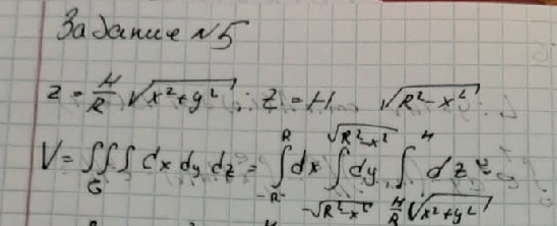 Задание №5
z = H/R √(x²+y²); z = H √(R²-x²)
V = ∭_G dx dy dz = ∫_{-R}^{R} dx ∫_{-√(R²-x²)}^{√(R²-x²)} dy ∫_{H/R √(x²+y²)}^{H} dz =